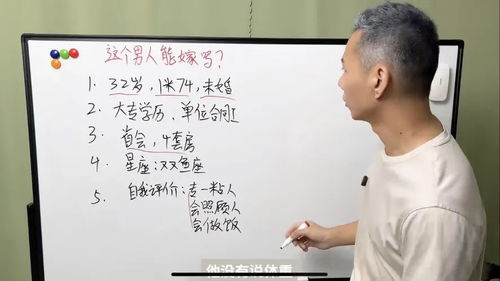 这个男人能嫁吗?
1. 32岁,1米74,未婚
2. 大专学历、单位合同工
3. 省会,4套房
4. 星座:双鱼座
5. 自我评价:走一米占人
会照顾人
会做饭
他没有说体重